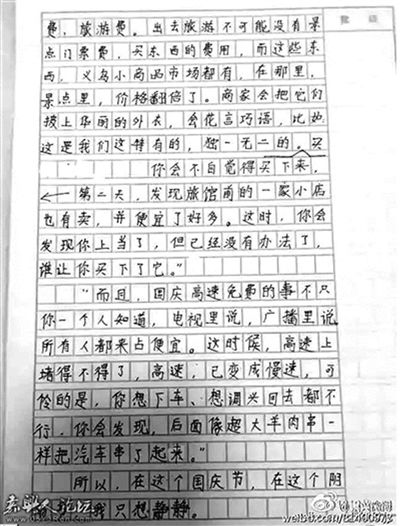 费、旅游费。出去旅游不可能没有景
点门票费，买东西的费用，而这些东
西，义乌小商品市场都有，在那里，
景点里，价格翻倍了。商家会把它们
披上华丽的外衣，会花言巧语，比如
这是我们这特有的，独一无二的。买
你会不自觉得买下来，
第二天，发现旅馆前的一家小店
也有卖，并便宜了好多。这时，你会
发现你上当了，但已经没有办法了，
谁让你买下了它。”
“而且，国庆高速免费的事不只
你一个人知道，电视里说，广播里说
所有人都来占便宜。这时候，高速上
堵得不得了，高速，已变成慢速，可
怜的是，你想下车、想调头回去都不
行，你会发现，后面像超大羊肉串一
样把汽车串了起来。”
所以，在这个国庆节，在这个阴
我只想静静。